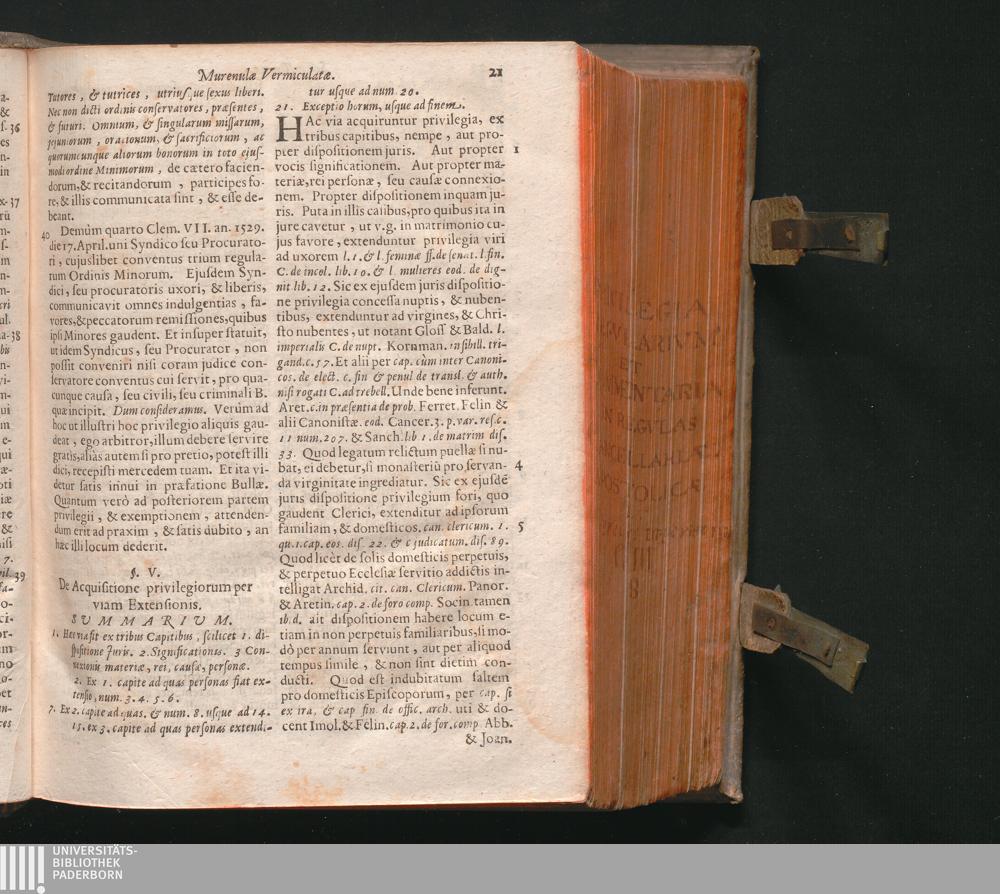 Murenulæ Vermiculatæ. 21
Tutores, & tutrices, utriusque sexus liberi.
Nec non dicti ordinis conservatores, præsentes,
& futuri. Omnium, & singularum missarum,
jejuniorum, orationum, & sacrificiorum, ac
quorumcunque aliorum bonorum in toto ejus-
modi ordine Minimorum, de cætero facien-
dorum, & recitandorum, participes fo-
re, & illis communicata sint, & esse de-
beant.
40 Demùm quarto Clem. VII. an. 1529.
die 17. April. uni Syndico seu Procurato-
ri, cujuslibet conventus trium regula-
rum Ordinis Minorum. Ejusdem Syn-
dici, seu procuratoris uxori, & liberis,
communicavit omnes indulgentias, fa-
vores, & peccatorum remissiones, quibus
ipsi Minores gaudent. Et insuper statuit,
ut idem Syndicus, seu Procurator, non
possit conveniri nisi coram judice con-
servatore conventus cui servit, pro qua-
cunque causa, seu civili, seu criminali B.
quæ incipit. Dum consideramus. Verùm ad
hoc ut illustri hoc privilegio aliquis gau-
deat, ego arbitror, illum debere servire
gratis, aliàs autem si pro pretio, potest illi
dici, recepisti mercedem tuam. Et ita vi-
detur satis innui in præfatione Bullæ.
Quantum verò ad posteriorem partem
privilegii, & exemptionem, attenden-
dum erit ad praxim, & satis dubito, an
hæc illi locum dederit.
§. V.
De Acquisitione privilegiorum per
viam Extensionis.
SUMMARIUM.
1. Hec via fit ex tribus Capitibus, scilicet 1. di-
spositione Juris. 2. Significationis. 3 Con-
nexionis materiæ, rei, causæ, personæ.
2. Ex 1. capite ad quas personas fiat ex-
tensio, num. 3. 4. 5. 6.
7. Ex 2. capite ad quas. & num. 8. usque ad 14.
15. ex 3. capite ad quas personas extendi-
tur usque ad num. 20.
21. Exceptio horum, usque ad finem.
HAc via acquiruntur privilegia, ex
tribus capitibus, nempe, aut pro-
pter dispositionem juris. Aut propter 1
vocis significationem. Aut propter ma-
teriæ, rei personæ, seu causæ connexio-
nem. Propter dispositionem inquam ju-
ris. Puta in illis casibus, pro quibus ita in
jure cavetur, ut v.g. in matrimonio cu-
jus favore, extenduntur privilegia viri
ad uxorem l. 1. & l. feminæ ff. de senat. l. fin.
C. de incol. lib. 10. & l. mulieres eod. de dig-
nit lib. 12. Sic ex ejusdem juris dispositio-
ne privilegia concessa nuptis, & nuben-
tibus, extenduntur ad virgines, & Chri-
sto nubentes, ut notant Gloss & Bald. l.
imperialis C. de nupt. Kornman. in sibill. tri-
gand. c. 57. Et alii per cap. cùm inter Canoni-
cos. de elect. c. fin & penul de transl. & auth.
nisi rogati C. ad trebell. Unde bene inferunt.
Aret. c. in præsentia de prob. Ferret. Felin &
alii Canonistæ. eod. Cancer. 3. p. var. res. c.
11 num. 207. & Sanch. lib 1. de matrim dis.
33. Quod legatum relictum puellæ si nu-
bat, ei debetur, si monasteriũ pro servan- 4
da virginitate ingrediatur. Sic ex ejusdẽ
juris dispositione privilegium fori, quo
gaudent Clerici, extenditur ad ipsorum
familiam, & domesticos. can. clericum. 1. 5
qu. 1. cap. eos. dis 22. & c judicatum. dis. 89.
Quod licèt de solis domesticis perpetuis,
& perpetuo Ecclesiæ servitio addictis in-
telligat Archid. cit. can. Clericum. Panor.
& Aretin. cap. 2. de foro comp. Socin. tamen
ib. d. ait dispositionem habere locum e-
tiam in non perpetuis familiaribus, si mo-
dò per annum serviunt, aut per aliquod
tempus simile, & non sint dictim con-
ducti. Quod est indubitatum saltem
pro domesticis Episcoporum, per cap. si
ex ira, & cap fin. de offic. arch. uti & do-
cent Imol. & Felin. cap. 2. de for. comp Abb.
& Joan.
UNIVERSITÄTS-
BIBLIOTHEK
PADERBORN